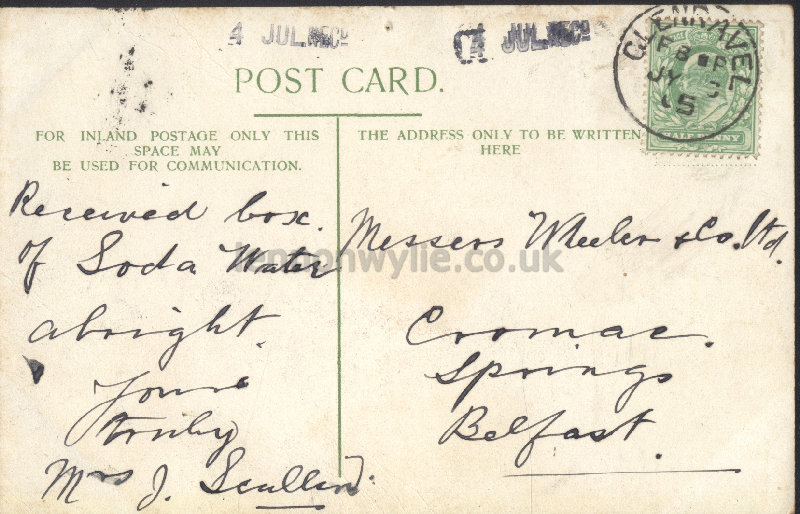 4 JUL. RECD
4 JUL. RECD
GLENRAVEL
JY 3
05
HALFPENNY
POST CARD.
FOR INLAND POSTAGE ONLY THIS
SPACE MAY
BE USED FOR COMMUNICATION.
THE ADDRESS ONLY TO BE WRITTEN
HERE
Received box.
of Soda Water
alright.
Yours
truly
Mrs J. Scullion.
Messers Wheeler & Co. Ltd.
Cromac.
Springs
Belfast.
lennonwylie.co.uk